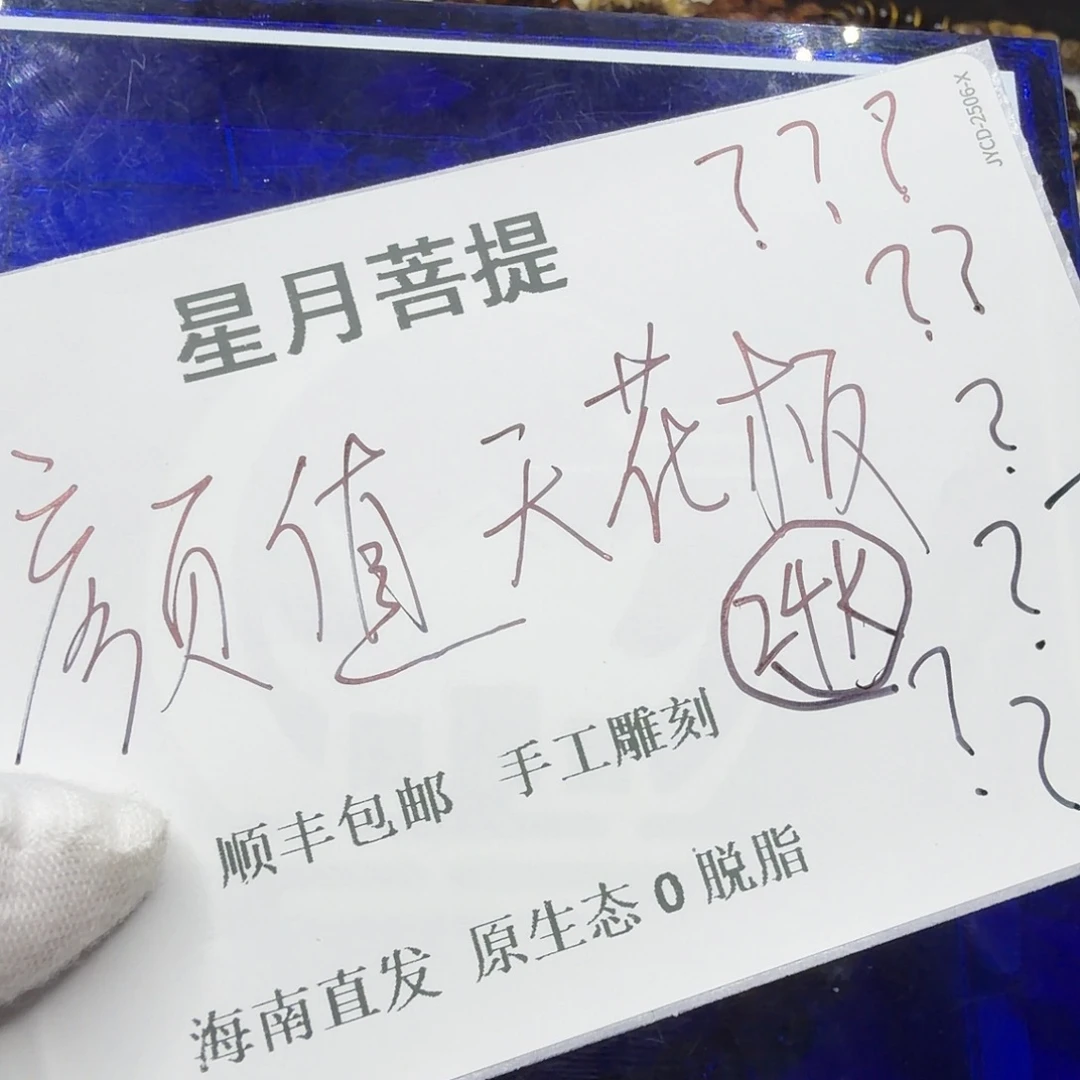 JYCD-2506-X
???
??
星月菩提
?
颜值天花板
?
24K
??
顺丰包邮 手工雕刻
海南直发 原生态0脱脂